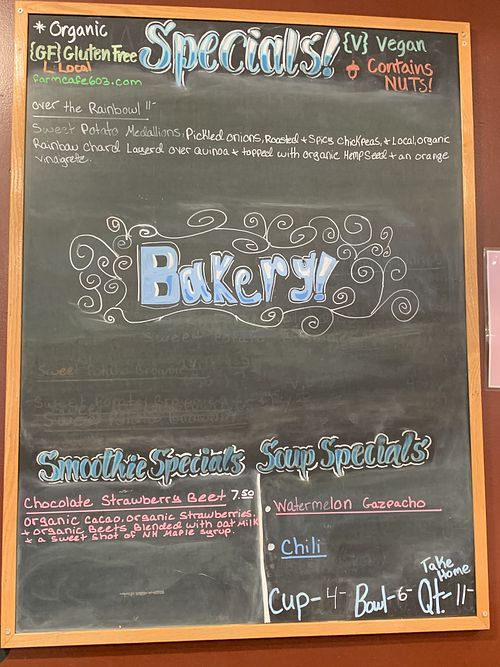 * Organic
Specials!
{V} Vegan
{GF} Gluten Free
L: Local
Contains
NUTS!
farmcafe603.com
over the Rainbowl 11-
Sweet Potato Medallions, Pickled onions, Roasted + Spicy Chickpeas, + Local, organic
Rainbow Chard Layerd over Quinoa + topped with organic Hemp Seed + an orange
vinagrete.
Bakery!
Sweet Potato Brownie
Smoothie Specials
Chocolate Strawberry Beet 7.50
organic cacao, organic strawberries,
+ organic Beets Blended with oat Milk
+ a sweet shot of NH Maple syrup.
Soup Specials
• Watermelon Gazpacho
• Chili
Take
Home
Cup- 4- Bowl- 6- Qt.- 11-